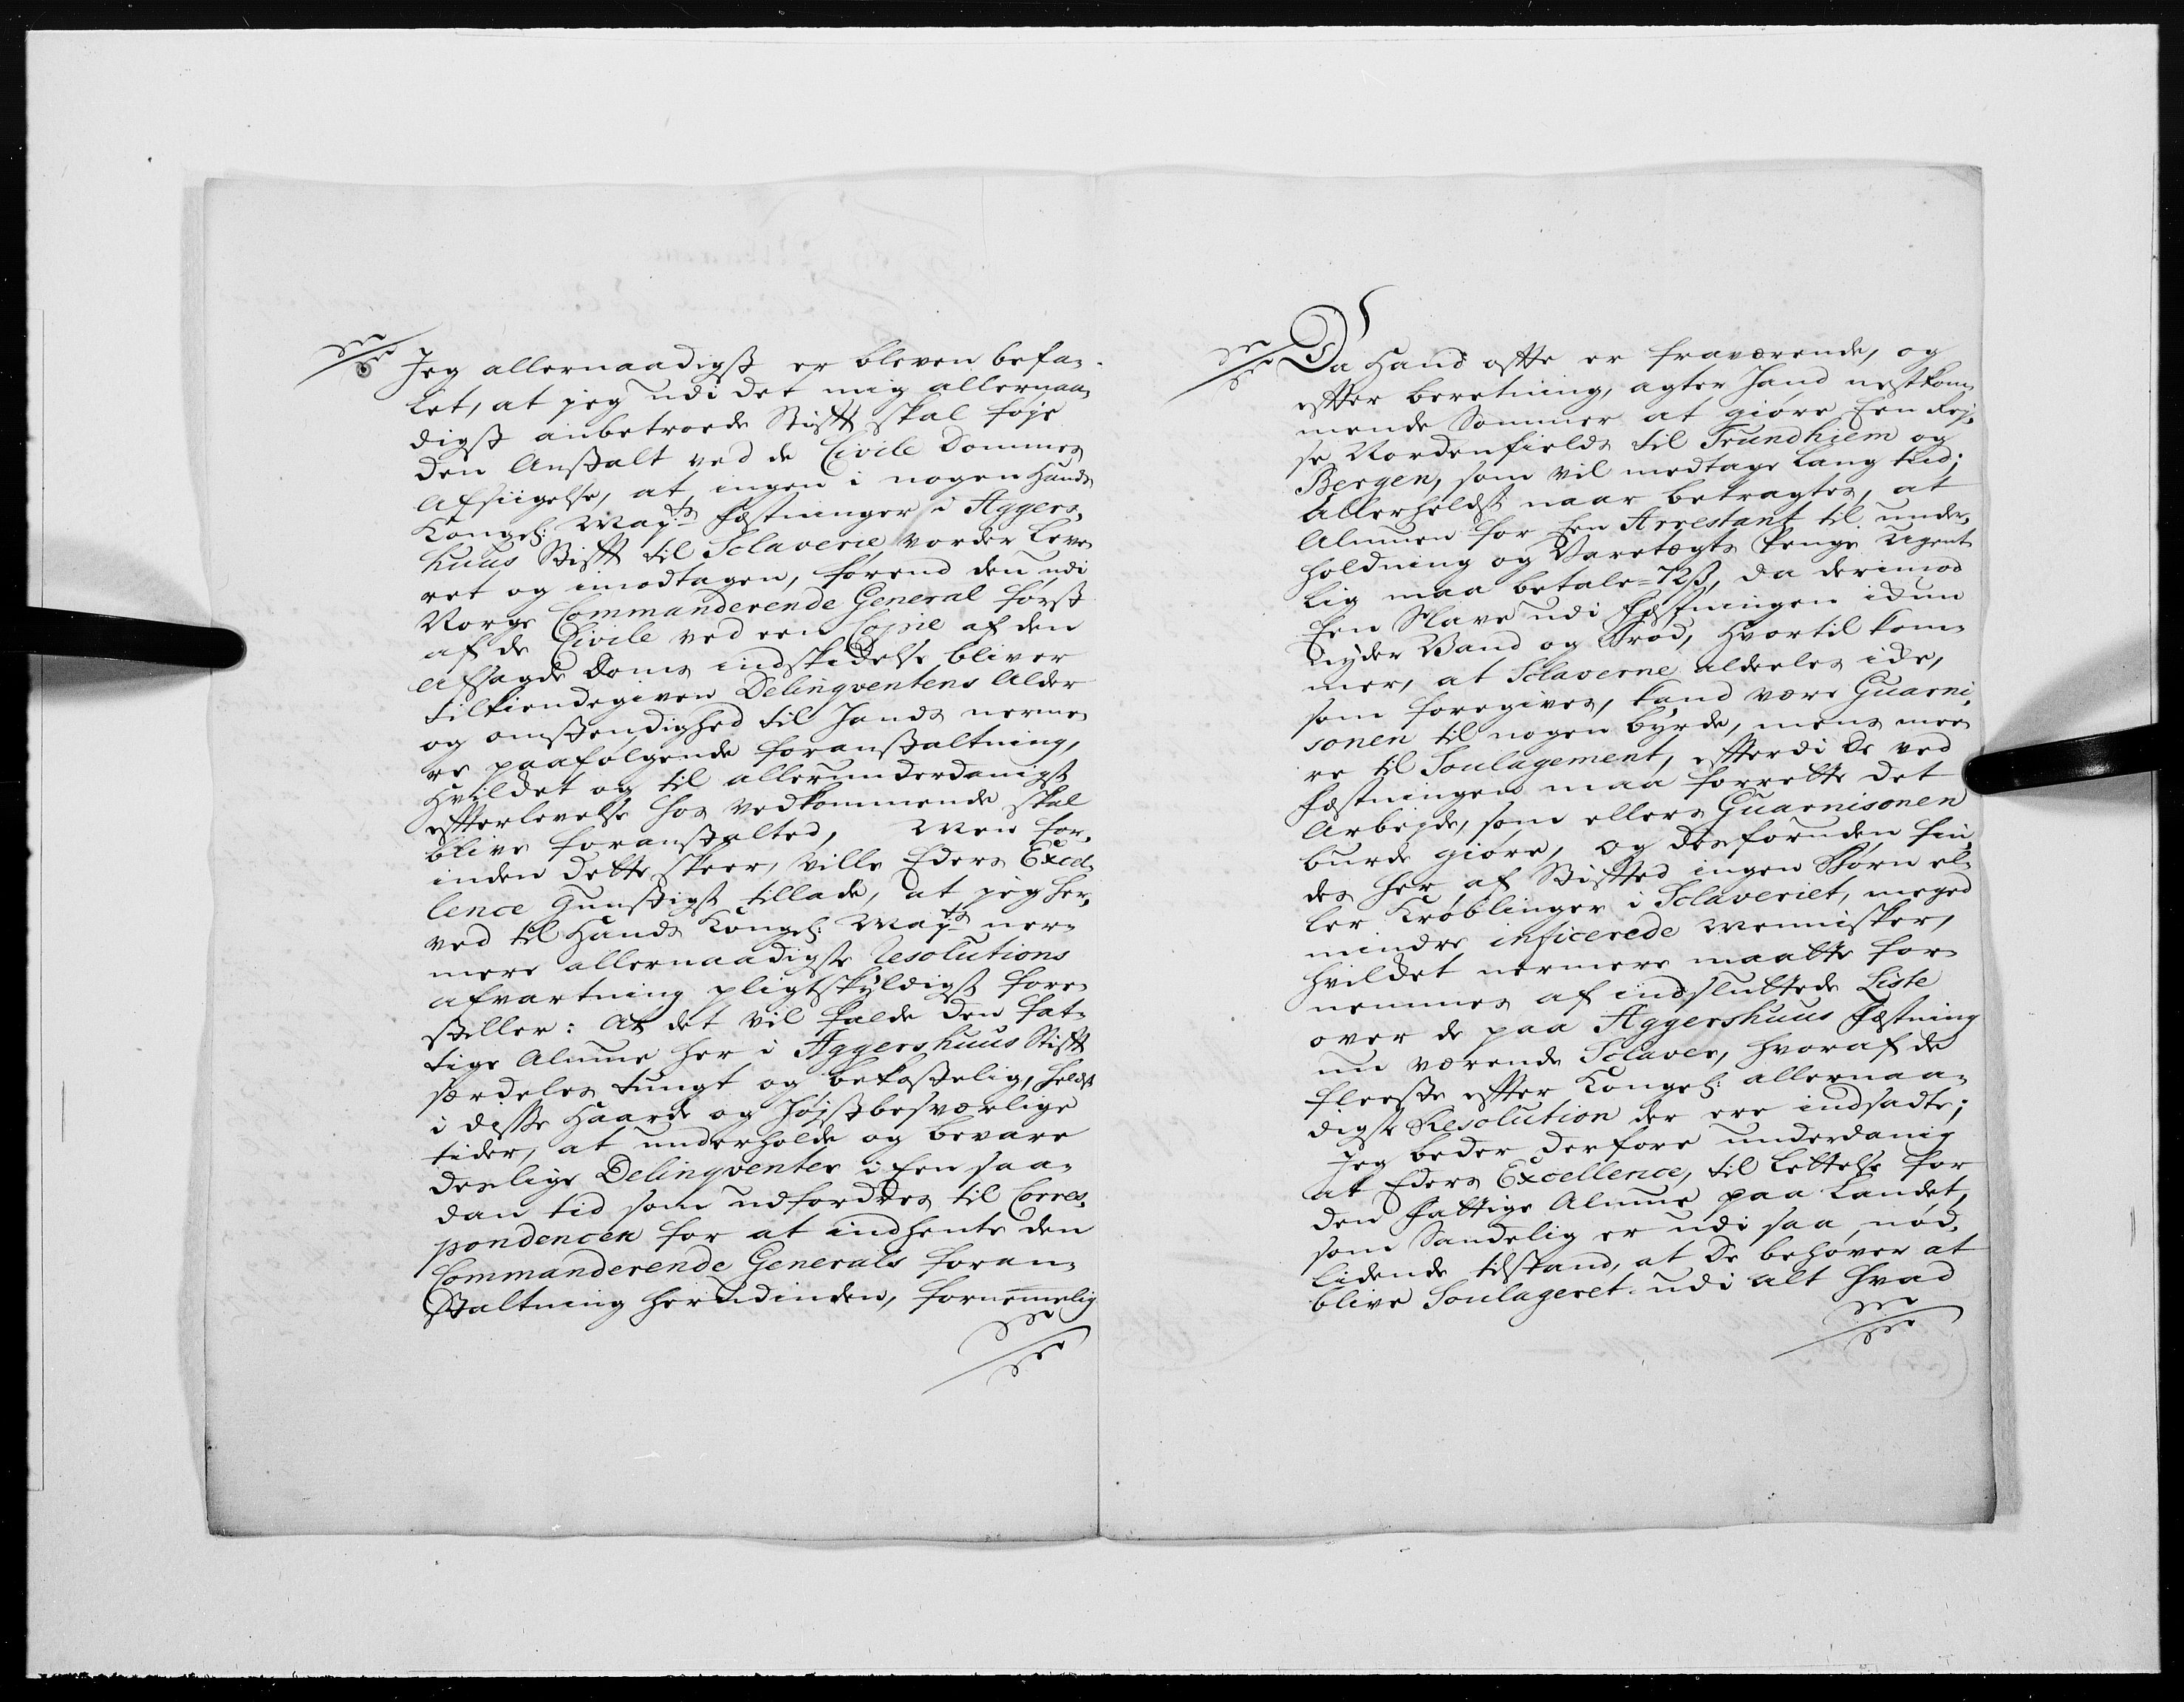 Jeg allernaadigst er bleven befa-
let, at jeg udi det mig allernaa-
digst anbetroede Stift skal føje
den Anstalt ved de Civile Dommes
Afsiigelse, at ingen i nogen Hands
Kongel: May:ts Fæstninger i Aggers-
huus Stift til Sclaverie vorder leve-
ret og imodtagen, førend den udi
Norge Commanderende General først
af de Civile ved een Copie af den
afsagde Doms indskikelse bliver
tilkiendegiven Delinqventens Alder
og omstendighed til hands nerme-
re paafølgende foranstaltning,
hvildet og til allerunderdanigst
efterlevelse hos vedkommende skal
blive foranstalted, Men for-
inden dette skeer, ville Eders Excel-
lence gunstigst tillade, at jeg her-
ved til Hands Kongel: May:ts ner-
mere allernaadigste Resolutions
afvartning pligtskyldigst fore-
stiller: At det vil falde den fat-
tige Almue her i Aggershuus Stift
særdeles tungt og bekostelig, heldst
i disse haarde og højstbesværlige
tider, at underholde og bevare
deslige Delinqventer i Een saa-
dan tid som udfordres til Corres-
pondencen for at indhente den
Commanderende Generals foran-
staltning herudinden, fornemelig
Da Hand ofte er fraværende, og
efter beretning, agter hand nestkom-
mende Sommer at giøre Een Rej-
se Nordenfields til Trundhiem og
Bergen, som vil medtage lang tid;
Allerheldst naar betragtes, at
Almuen for Een Arrestant til under-
holdning og Varetægts penge Ugent-
lig maa betale 72ß, da derimod
Een Slave udi Fæstningen idun
nyder Vand og Brød, hvortil kom-
mer, at Sclaverne aldeeles ike,
som foregives, kand være Guarni-
sonen til nogen byrde, mens mee-
re til Soulagement, efterdi de ved
Fæstningen maa forrette det
Arbejde, som ellers Guarnisonen
burde giøre, og desforuden fin-
des her af Stiftet ingen Børn el-
ler Krøblinger i Sclaveriet, meget
mindre inficerede Mennisker,
hvildet nermere maatte for-
nemmes af indsluttede Liste
over de paa Aggershuus Fæstning
nu værende Sclaver, hvoraf de
fleeste efter Kongel: allernaa-
digste Resolution der ere indsadte;
Jeg beder derfore underdanig
at Eders Excellence, til Lettelse for
den fattige Almue paa Landet,
som Sandelig er udi saa nød-
lidende tilstand, at de behøver at
blive Soulageret udi alt hvad